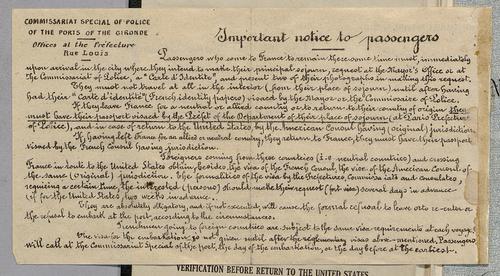 COMMISSARIAT SPECIAL OF POLICE
OF THE PORTS OF THE GIRONDE
Offices at the Prefecture
Rue Louis
Important notice to passengers
Passengers who come to France to remain there some time must, immediately
upon arrival in the city where they intend to make their principal sojourn, request at the Mayor's Office or at
the Commissariat of Police, a "Carte d'Identité", and present two of their photographs in making this request.
They must not travel at all in the interior (from their place of sojourn) until after having
had their "Carte d'identité" (French identity papers) visaed by the Mayor or the Commissaire of Police.
If they leave France for a neutral or allied country or to return to their country of origin, they
must have their passport visaed by the Préfet of the Department of their place of sojourn (at Paris Préfecture
of Police), and in case of return to the United States, by the American Consul having (original) jurisdiction.
If, having left France for an allied or neutral country, they return to France, they must have their passport
visaed by the French Consul having jurisdiction.
Foreigners coming from these countries (i.e. neutral countries) and crossing
France in route to the United States obtain, besides the visa of the French Consul, the visa of the American Consul of
the same (original) jurisdiction. The formalities of the visa by the Prefectures, Commissariats and Consulates,
requiring a certain time, the interested (persons) should make their request (for visa) several days in advance
(if for the United States, two weeks in advance.
They are absolutely obligatory, and if not executed, will cause the formal refusal to leave or to re-enter or
the refusal to embark at the port, according to the circumstances.
Frenchmen going to foreign countries are subject to the same visa requirements at each voyage.
The visa for the embarkation is not given until after the reglementary visas above-mentioned, Passengers
will call at the Commissariat Special of the port, the day of the embarkation, or the day before at the earliest.
VERIFICATION BEFORE RETURN TO THE UNITED STATES